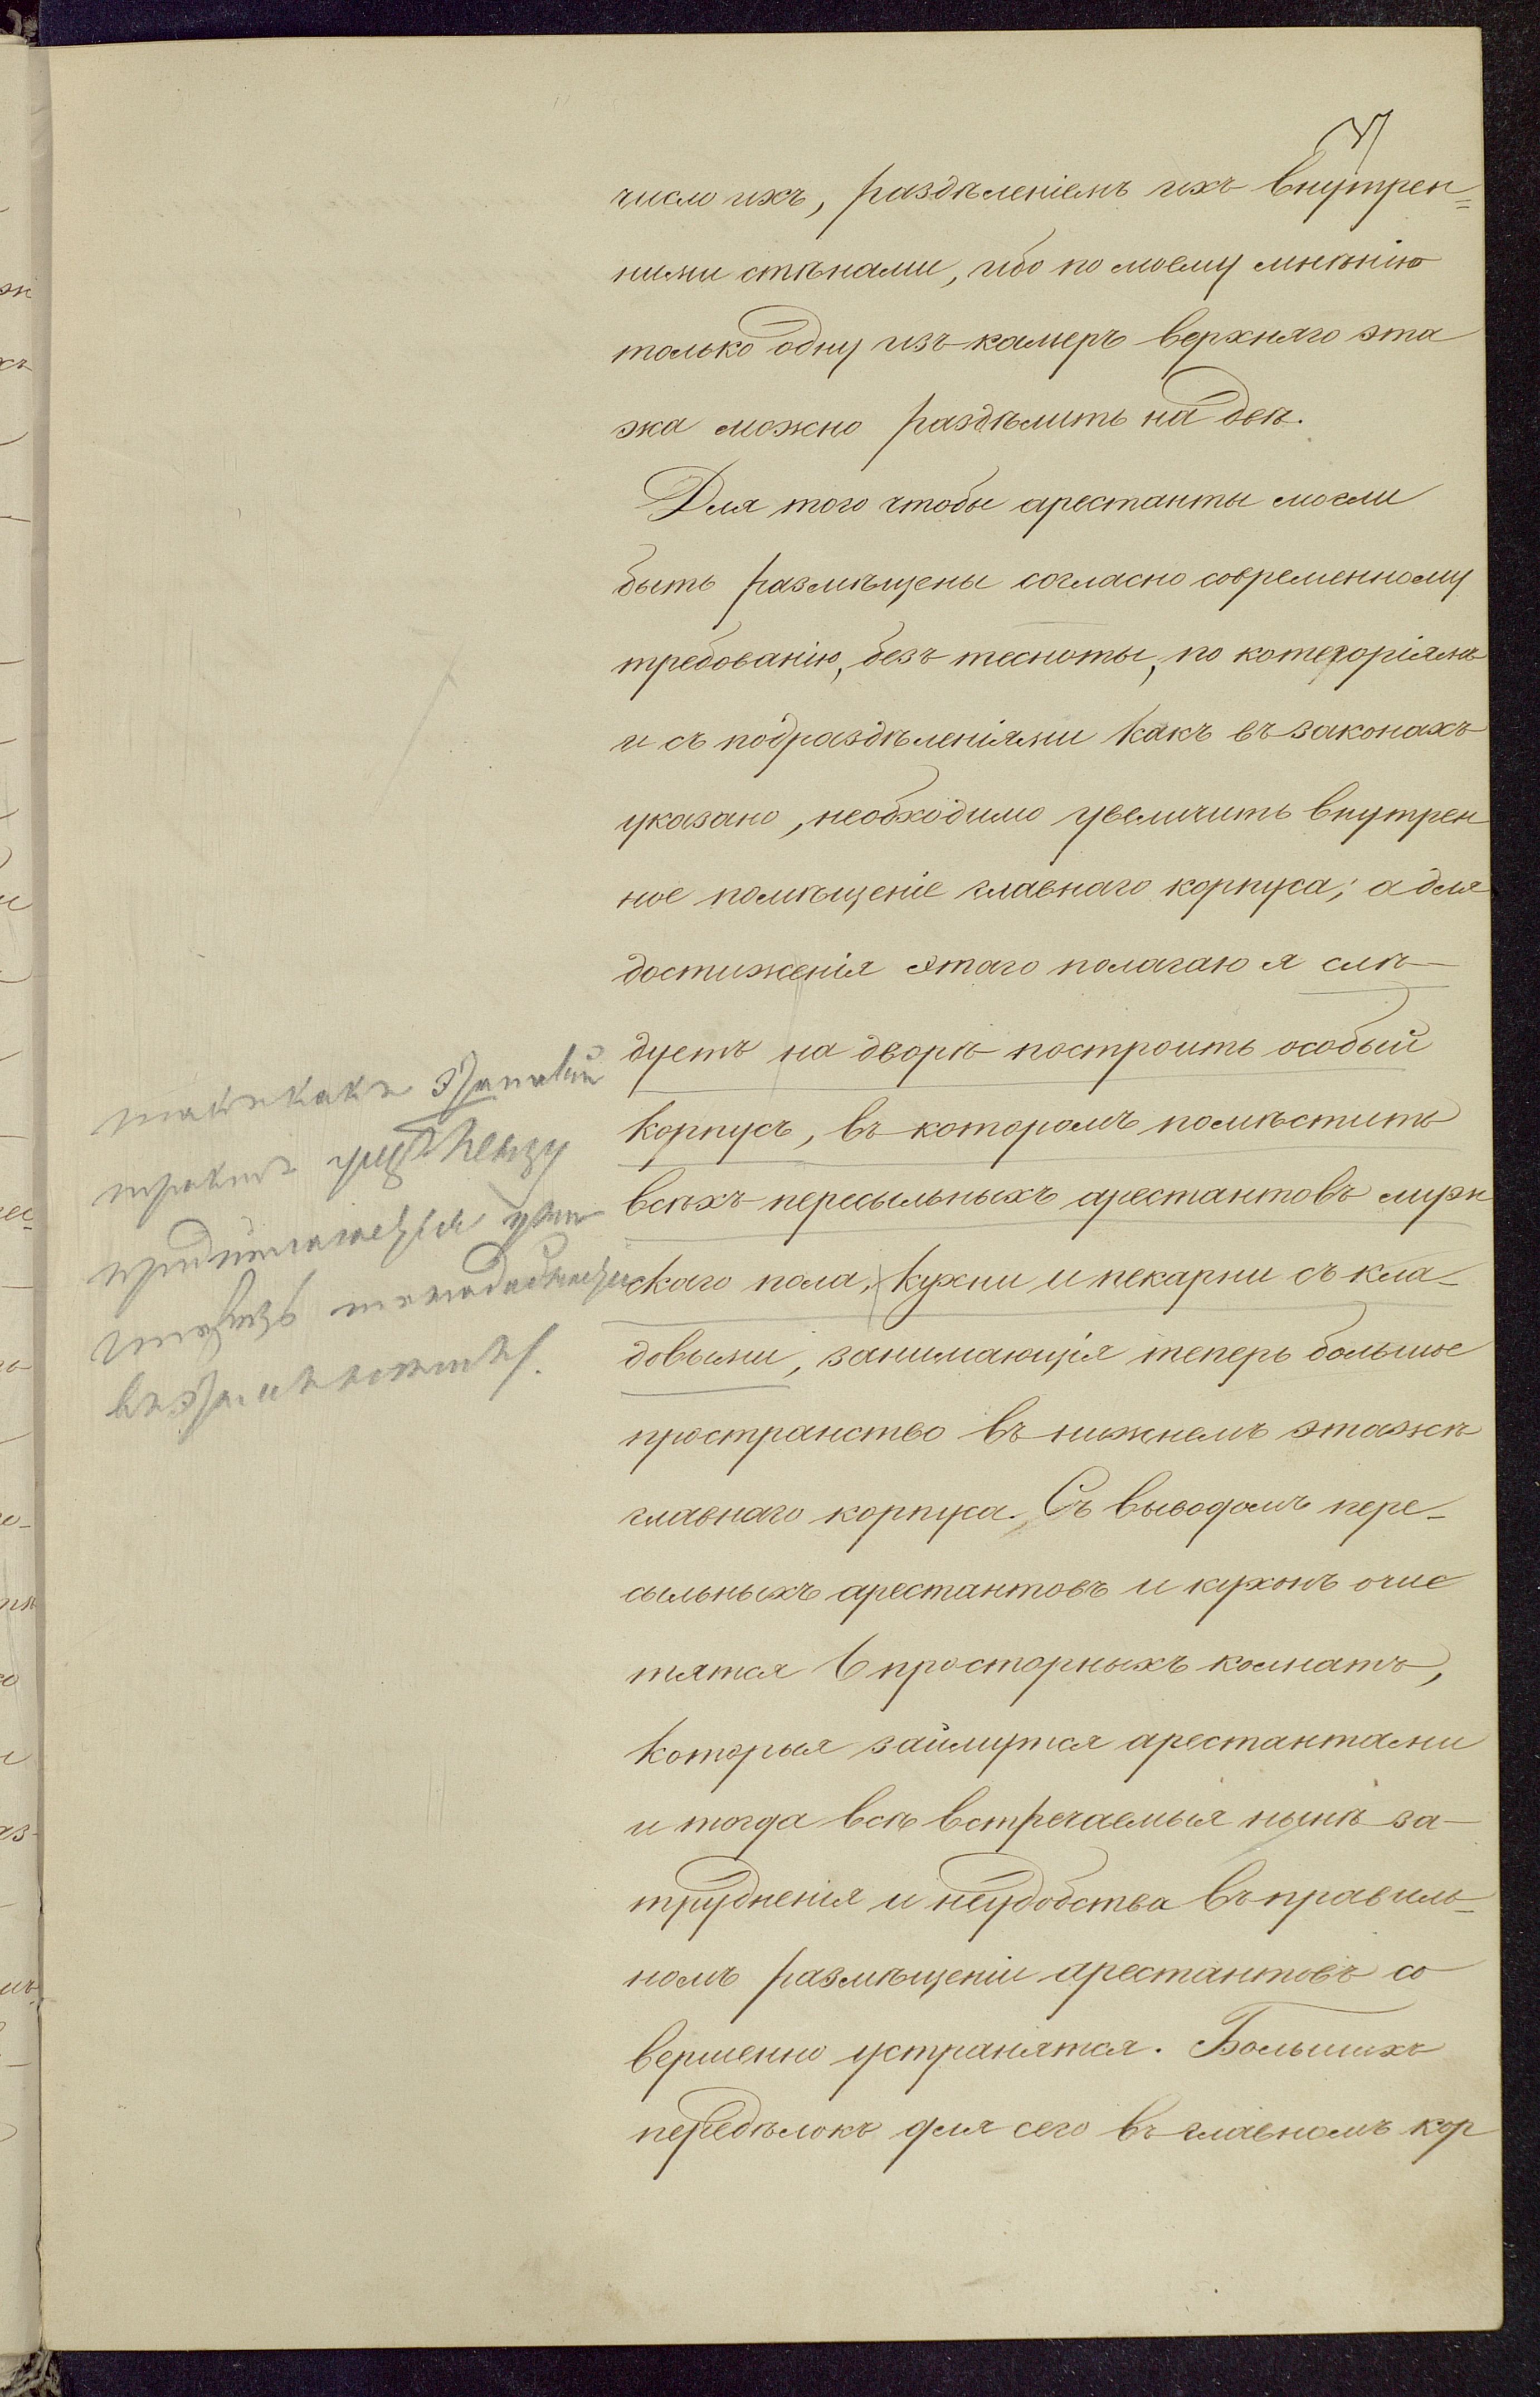 число ихъ, раздѣленіемъ ихъ внутрен=
ними стѣнами, ибо по моему мнѣнію
только одну изъ камеръ верхняго эта
жа можно раздѣлить на двѣ.
Для того чтобы арестанты могли
быть размѣщены согласно современному
требованію, безъ тесноты, по категоріямъ
и съ подраздѣленіями какъ въ законахъ
указано, необходимо увеличить внутрен
ное помѣщеніе главнаго корпуса; а для
достиженія этаго полагаю я слѣ-
дуетъ на дворѣ построить особый
корпусъ, въ которомъ помѣстить
всѣхъ пересыльныхъ арестантовъ мужс
скаго пола, кухни и пекарни съ кла-
довыми, занимающія теперь большое
пространство въ нижнемъ этажѣ
главнаго корпуса. Съ выводомъ пере-
сыльныхъ арестантовъ и кухонь очис
тятся 6 просторныхъ комнатъ,
которыя займутся арестантами
и тогда всѣ встрѣчаемыя нынѣ за-
трудненія и неудобства въ правиль-
номъ размѣщеніи арестантовъ со
вершенно устранятся. Большихъ
передѣлокъ для сего въ главномъ кор
такъ какъ этапный
трактъ чрезъ Пензу